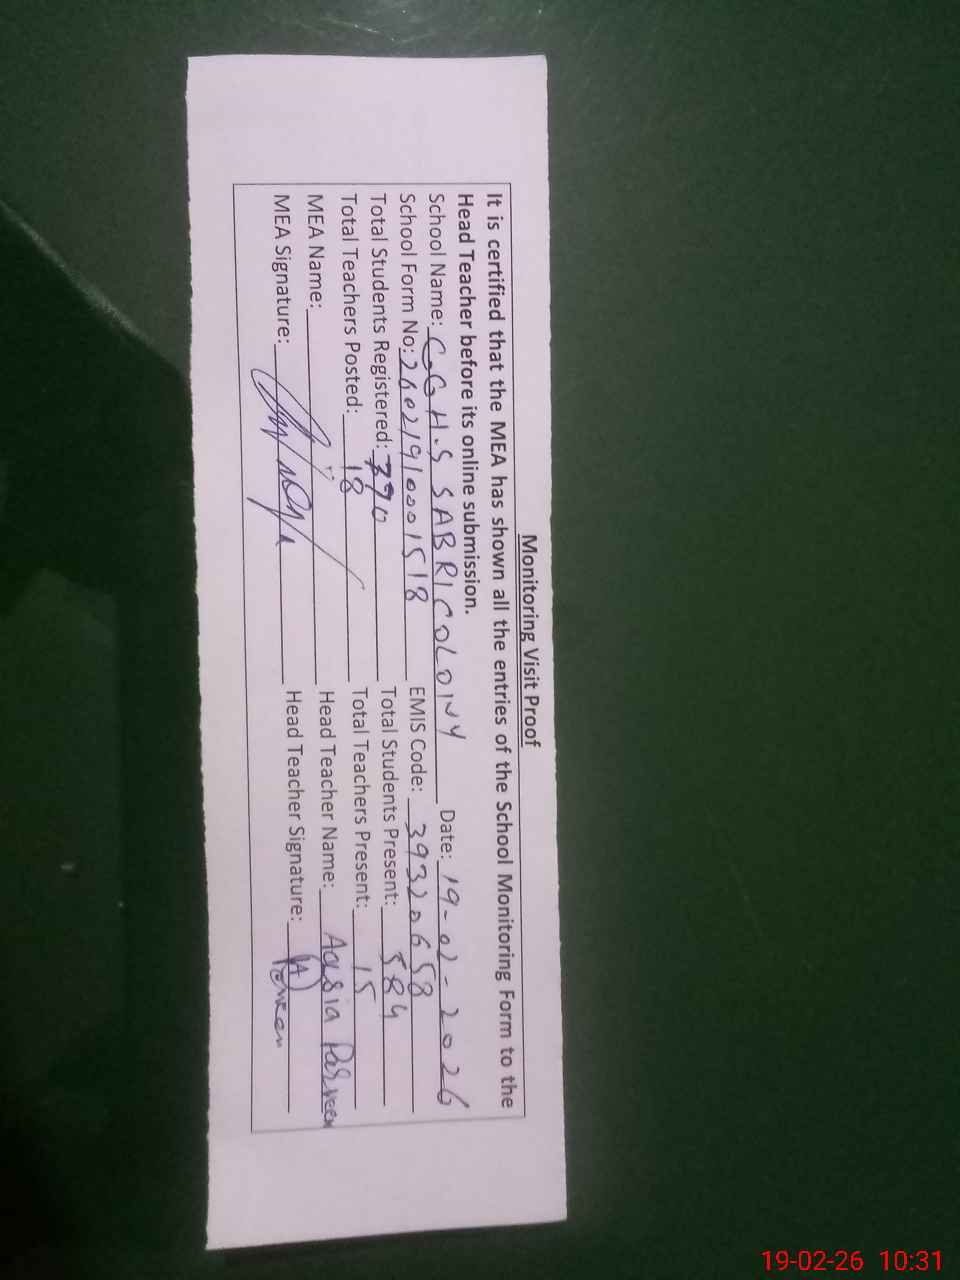 Monitoring Visit Proof
It is certified that the MEA has shown all the entries of the School Monitoring Form to the
Head Teacher before its online submission.
School Name: G.G.H.S SABRI COLONY Date: 19-02-2026
School Form No: 26021910001518 EMIS Code: 39320658
Total Students Registered: 790 Total Students Present: 584
Total Teachers Posted: 18 Total Teachers Present: 15
MEA Name: Head Teacher Name: Parveen
MEA Signature: Head Teacher Signature:
19-02-26 10:31